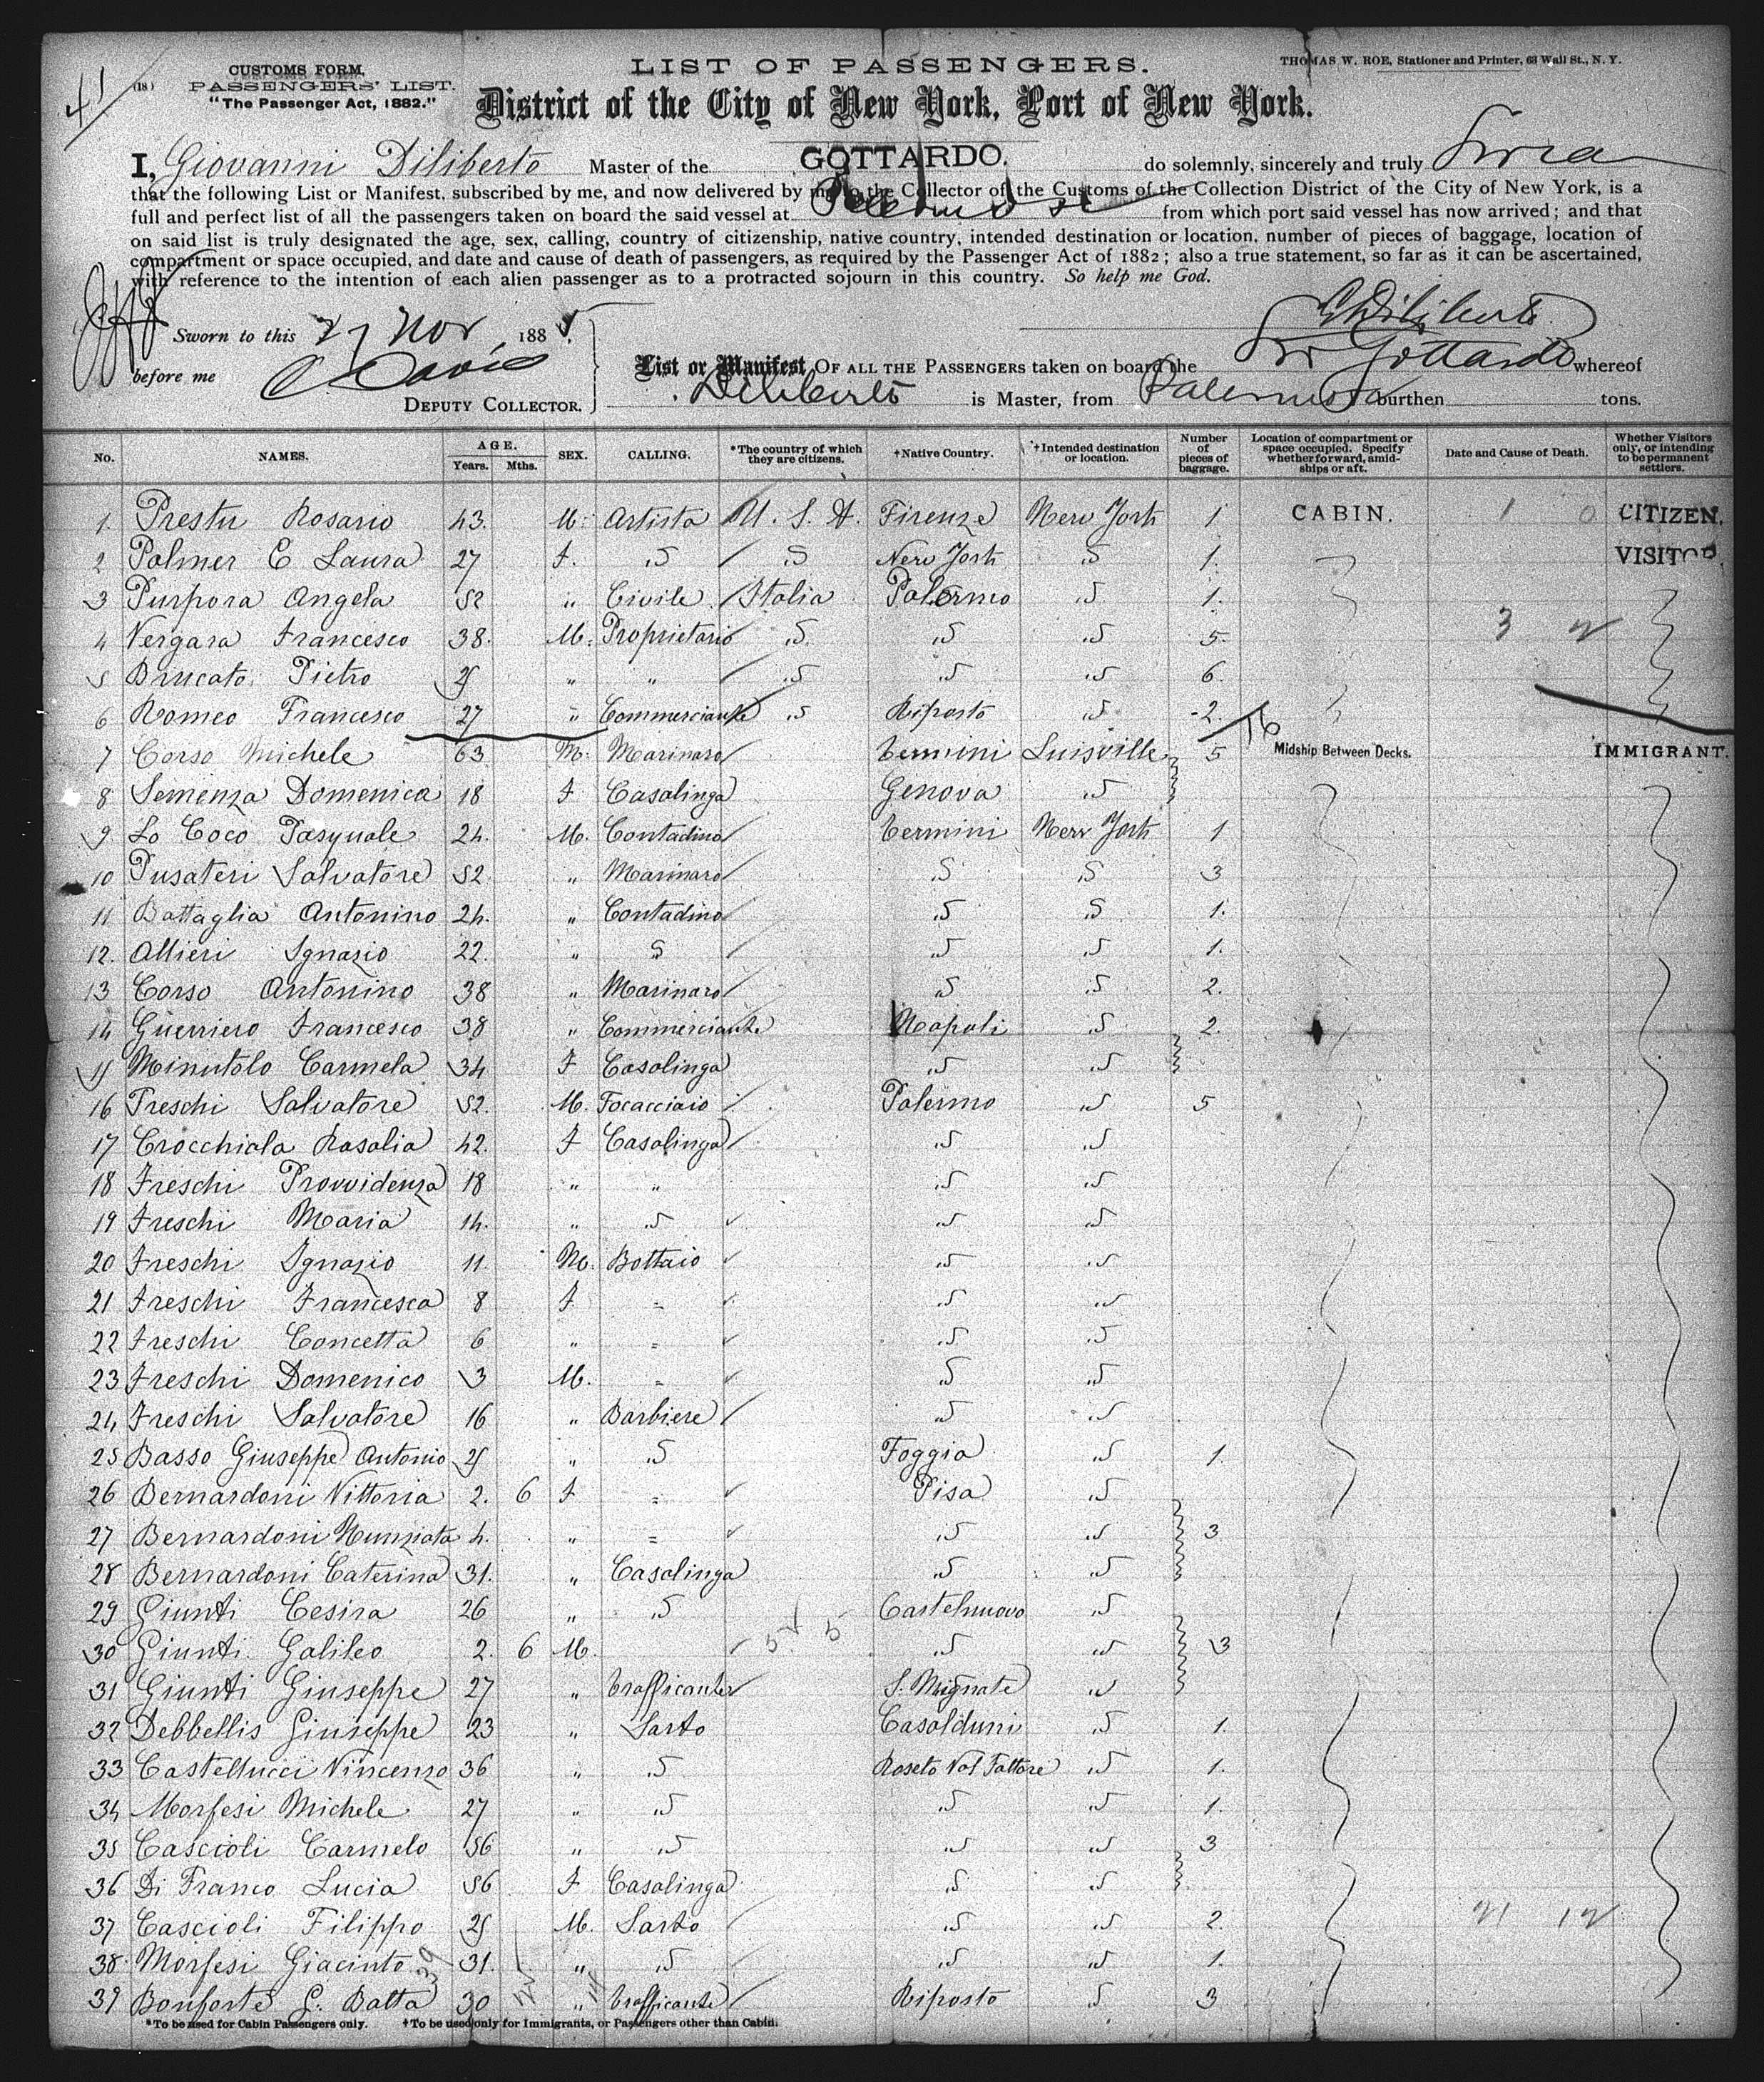 41
CUSTOMS FORM.
(18) PASSENGERS' LIST.
"The Passenger Act, 1882."
LIST OF PASSENGERS.
THOMAS W. ROE, Stationer and Printer, 63 Wall St., N. Y.
District of the City of New York, Port of New York.
I, Giovanni Diliberto Master of the GOTTARDO. do solemnly, sincerely and truly Swear
that the following List or Manifest, subscribed by me, and now delivered by me to the Collector of the Customs of the Collection District of the City of New York, is a
full and perfect list of all the passengers taken on board the said vessel at Palermo from which port said vessel has now arrived; and that
on said list is truly designated the age, sex, calling, country of citizenship, native country, intended destination or location, number of pieces of baggage, location of
compartment or space occupied, and date and cause of death of passengers, as required by the Passenger Act of 1882; also a true statement, so far as it can be ascertained,
with reference to the intention of each alien passenger as to a protracted sojourn in this country. So help me God.
GDiliberto
Sworn to this 27 Nov, 188
before me C Davis
DEPUTY COLLECTOR.
List or Manifest OF ALL THE PASSENGERS taken on board the Str Gottardo whereof
Diliberto is Master, from Palermo burthen tons.
No. NAMES. AGE. Years. Mths. SEX. CALLING. *The country of which they are citizens. †Native Country. †Intended destination or location. Number of pieces of baggage. Location of compartment or space occupied. Specify whether forward, amidships or aft. Date and Cause of Death. Whether Visitors only, or intending to be permanent settlers.
1. Prestu Rosario 43. M. Artista U. S. A. Firenze New York 1 CABIN. 1 0 CITIZEN.
2 Palmer E Laura 27 F. "S "S New York "S 1. VISITOR.
3 Purpora Angela 52 " Civile Italia Palermo "S 1.
4 Vergara Francesco 38. M. Proprietario "S "S "S 5. 3 2
5 Brucato Pietro 25 " " "S "S "S 6.
6 Romeo Francesco 27 " Commerciante "S Riposto "S 2. 16
7 Corso Michele 63 M. Marinaro Termini Luisville 5 Midship Between Decks. IMMIGRANT.
8 Semenza Domenica 18 F Casalinga Genova "S
9 Lo Coco Pasquale 24. M. Contadino Termini New York 1
10 Pusateri Salvatore 52 " Marinaro S S 3
11 Battaglia Antonino 24. " Contadino "S S 1.
12. Allieri Ignazio 22. " S "S "S 1.
13 Corso Antonino 38 " Marinaro S "S 2.
14 Guerriero Francesco 38 " Commerciante Napoli "S 2.
15 Minutolo Carmela 34 F Casalinga "S "S
16 Freschi Salvatore 52. M. Focacciaio Palermo "S 5
17 Crocchiola Rosalia 42. F Casalinga "S "S
18 Freschi Provvidenza 18 " " "S "S
19 Freschi Maria 14. " "S "S "S
20 Freschi Ignazio 11 M. Bottaio "S "S
21 Freschi Francesca 8 F. = "S "S
22 Freschi Concetta 6 " = "S "S
23 Freschi Domenico 3 M. = "S "S
24 Freschi Salvatore 16 " Barbiere "S "S
25 Basso Giuseppe Antonio 25 " "S Foggia "S 1.
26 Bernardoni Vittoria 2. 6 F = Pisa "S
27 Bernardoni Nunziata 4. " = "S "S 3
28 Bernardoni Caterina 31. " Casalinga "S "S
29 Giunti Cesira 26 " "S Castelnuovo "S
30 Giunti Galileo 2. 6 M. "S "S 3
31 Giunti Giuseppe 27 " Trafficante S. Mignate "S
32 Debbellis Giuseppe 23 " Sarto Casalduni "S 1.
33 Castellucci Vincenzo 36 " "S Roseto Val Fattore "S 1.
34 Morfesi Michele 27 " "S "S "S 1.
35 Cascioli Carmelo 56 " "S "S "S 3
36 Di Franco Lucia 56 F Casalinga "S "S
37 Cascioli Filippo 25 M. Sarto "S "S 2. 21 12
38 Morfesi Giacinto 31. " "S "S "S 1.
39 Bonforte G. Batta 30 " Trafficante Riposto "S 3
*To be used for Cabin Passengers only. †To be used only for Immigrants, or Passengers other than Cabin.